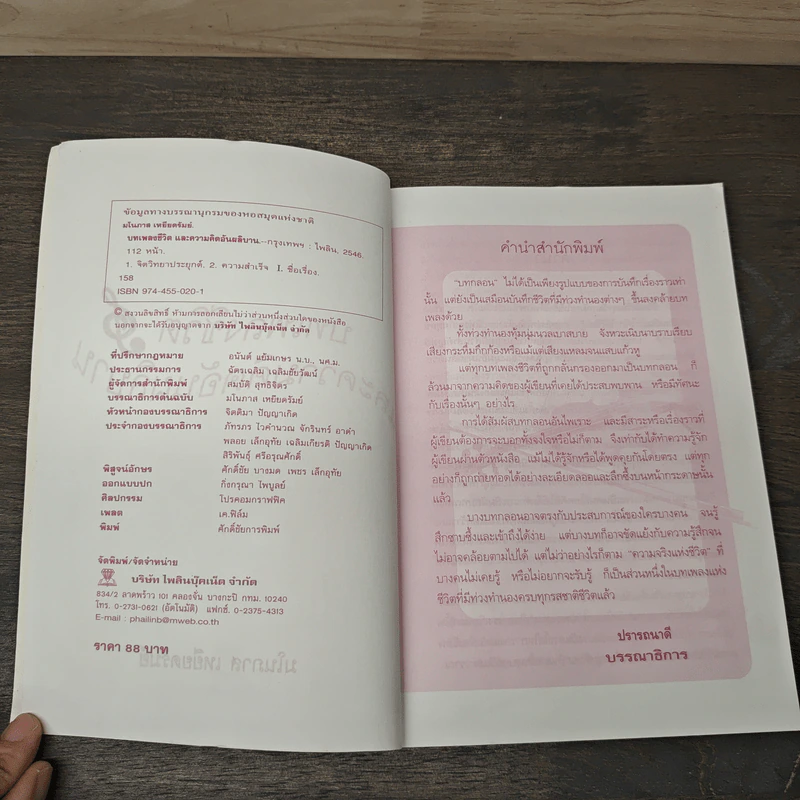 ข้อมูลทางบรรณานุกรมของหอสมุดแห่งชาติ
มโนภาส เหยียดรัมย์.
บทเพลงชีวิต และความคิดอันผลิบาน.--กรุงเทพฯ : ไพลิน, 2546.
112 หน้า.
1. จิตวิทยาประยุกต์. 2. ความสำเร็จ I. ชื่อเรื่อง.
158
ISBN 974-455-020-1
© สงวนลิขสิทธิ์ ห้ามการลอกเลียนไม่ว่าส่วนหนึ่งส่วนใดของหนังสือ
นอกจากจะได้รับอนุญาตจาก บริษัท ไพลินบุ๊คเน็ต จำกัด
ที่ปรึกษากฎหมาย อนันต์ แย้มเกษร น.บ., นศ.ม.
ประธานกรรมการ ฉัตรเฉลิม เฉลิมชัยวัฒน์
ผู้จัดการสำนักพิมพ์ สมบัติ สุทธิจิตร
บรรณาธิการต้นฉบับ มโนภาส เหยียดรัมย์
หัวหน้ากองบรรณาธิการ จิตติมา ปัญญาเกิด
ประจำกองบรรณาธิการ ภัทรภร ไวคำนวณ จักรินทร์ อาดำ
พลอย เล็กอุทัย เฉลิมเกียรติ ปัญญาเกิด
สิริพันธุ์ ศรีอรุณศักดิ์
พิสูจน์อักษร ศักดิ์ชัย บางมด เพชร เล็กอุทัย
ออกแบบปก กิ่งกรุณา ไพบูลย์
ศิลปกรรม โปรคอมกราฟฟิค
เพลต เค.ฟิล์ม
พิมพ์ ศักดิ์ชัยการพิมพ์
จัดพิมพ์/จัดจำหน่าย
บริษัท ไพลินบุ๊คเน็ต จำกัด
834/2 ลาดพร้าว 101 คลองจั่น บางกะปิ กทม. 10240
โทร. 0-2731-0621 (อัตโนมัติ) แฟกซ์. 0-2375-4313
E-mail : phailinb@mweb.co.th
ราคา 88 บาท
คำนำสำนักพิมพ์
"บทกลอน" ไม่ได้เป็นเพียงรูปแบบของการบันทึกเรื่องราวเท่า
นั้น แต่ยังเป็นเสมือนบันทึกชีวิตที่มีท่วงทำนองต่างๆ ขึ้นลงคล้ายบท
เพลงด้วย
ทั้งท่วงทำนองทุ้มนุ่มนวลเบาสบาย จังหวะเนิบนาบราบเรียบ
เสียงกระหึ่มกึกก้องหรือแม้แต่เสียงแหลมจนแสบแก้วหู
แต่ทุกบทเพลงชีวิตที่ถูกกลั่นกรองออกมาเป็นบทกลอน ก็
ล้วนมาจากความคิดของผู้เขียนที่เคยได้ประสบพบพาน หรือมีทัศนะ
กับเรื่องนั้นๆ อย่างไร
การได้สัมผัสบทกลอนอันไพเราะ และมีสาระหรือเรื่องราวที่
ผู้เขียนต้องการจะบอกทั้งจงใจหรือไม่ก็ตาม จึงเท่ากับได้ทำความรู้จัก
ผู้เขียนผ่านตัวหนังสือ แม้ไม่ได้รู้จักหรือได้พูดคุยกันโดยตรง แต่ทุก
อย่างก็ถูกถ่ายทอดได้อย่างละเอียดลออและลึกซึ้งบนหน้ากระดาษนั้น
แล้ว
บางบทกลอนอาจตรงกับประสบการณ์ของใครบางคน จนรู้
สึกซาบซึ้งและเข้าถึงได้ง่าย แต่บางบทก็อาจขัดแย้งกับความรู้สึกจน
ไม่อาจคล้อยตามไปได้ แต่ไม่ว่าอย่างไรก็ตาม "ความจริงแห่งชีวิต" ที่
บางคนไม่เคยรู้ หรือไม่อยากจะรับรู้ ก็เป็นส่วนหนึ่งในบทเพลงแห่ง
ชีวิตที่มีท่วงทำนองครบทุกรสชาติชีวิตแล้ว
ปรารถนาดี
บรรณาธิการ